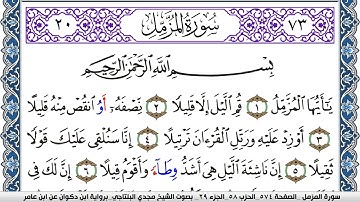 ٢٠ سُورَةُ المُزَّمِّلِ ٧٣
بِسْمِ اللَّهِ الرَّحْمَٰنِ الرَّحِيمِ
يَٰٓأَيُّهَا ٱلْمُزَّمِّلُ ١ قُمِ ٱلَّيْلَ إِلَّا قَلِيلًا ٢ نِّصْفَهُۥٓ أَوُ ٱنقُصْ مِنْهُ قَلِيلًا
٣ أَوْ زِدْ عَلَيْهِ وَرَتِّلِ ٱلْقُرْءَانَ تَرْتِيلًا ٤ إِنَّا سَنُلْقِى عَلَيْكَ قَوْلًا
ثَقِيلًا ٥ إِنَّ نَاشِئَةَ ٱلَّيْلِ هِىَ أَشَدُّ وِطَآءً وَأَقْوَمُ قِيلًا ٦ إِنَّ لَكَ فِى
سورة المزمل . الصفحة ٥٧٤ الحزب ٥٨ الجزء ٢٩ . بصوت الشيخ مجدي البلتاجي . برواية ابن ذكوان عن ابن عامر